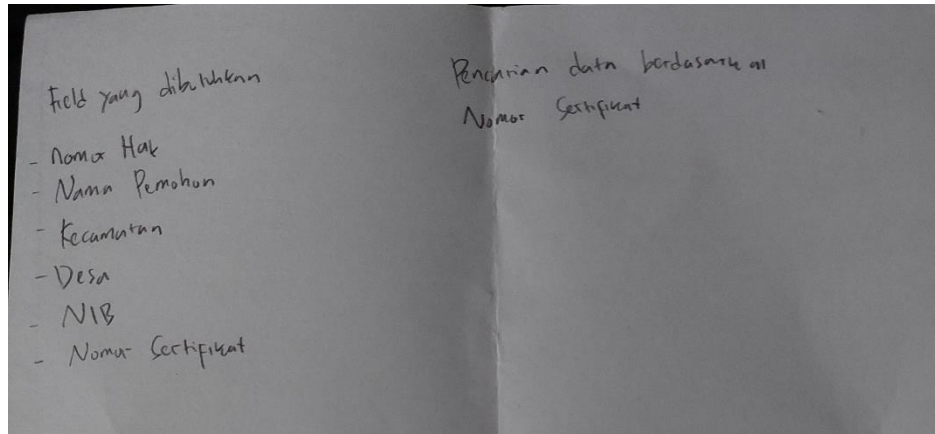 Field yang dibutuhkan
- Nomor Hak
- Nama Pemohon
- Kecamatan
- Desa
- NIB
- Nomor Sertifikat
Pencarian data berdasarkan
Nomor Sertifikat